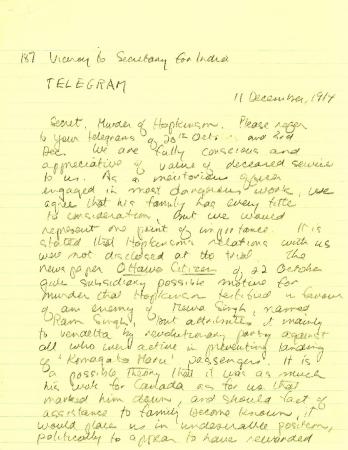 187 Viceroy to Secretary for India
TELEGRAM
11 December, 1914
Secret. Murder of Hopkinson. Please refer
to your telegrams of 20th Oct. and 2nd
Dec. We are fully conscious and
appreciative of value of deceased service
to us. As a meritorious officer
engaged in most dangerous work, we
agree that his family has every title
to consideration, but we would
represent one point of importance. It is
stated that Hopkinson's relations with us
were not disclosed at the trial. The
newspaper Ottawa Citizen of 22 October
gives subsidiary possible motive for
murder that Hopkinson testified in favour
of an enemy of Mewa Singh, named
Ram Singh, but attributes it mainly
to vendetta by revolutionary party against
all who were active in preventing landing
of 'Komagata Maru' passengers. It is
a possible theory that it was as much
his work for Canada as for us that
marked him down, and should fact of
assistance to family become known, it
would place us in undesirable position,
politically to appear to have rewarded